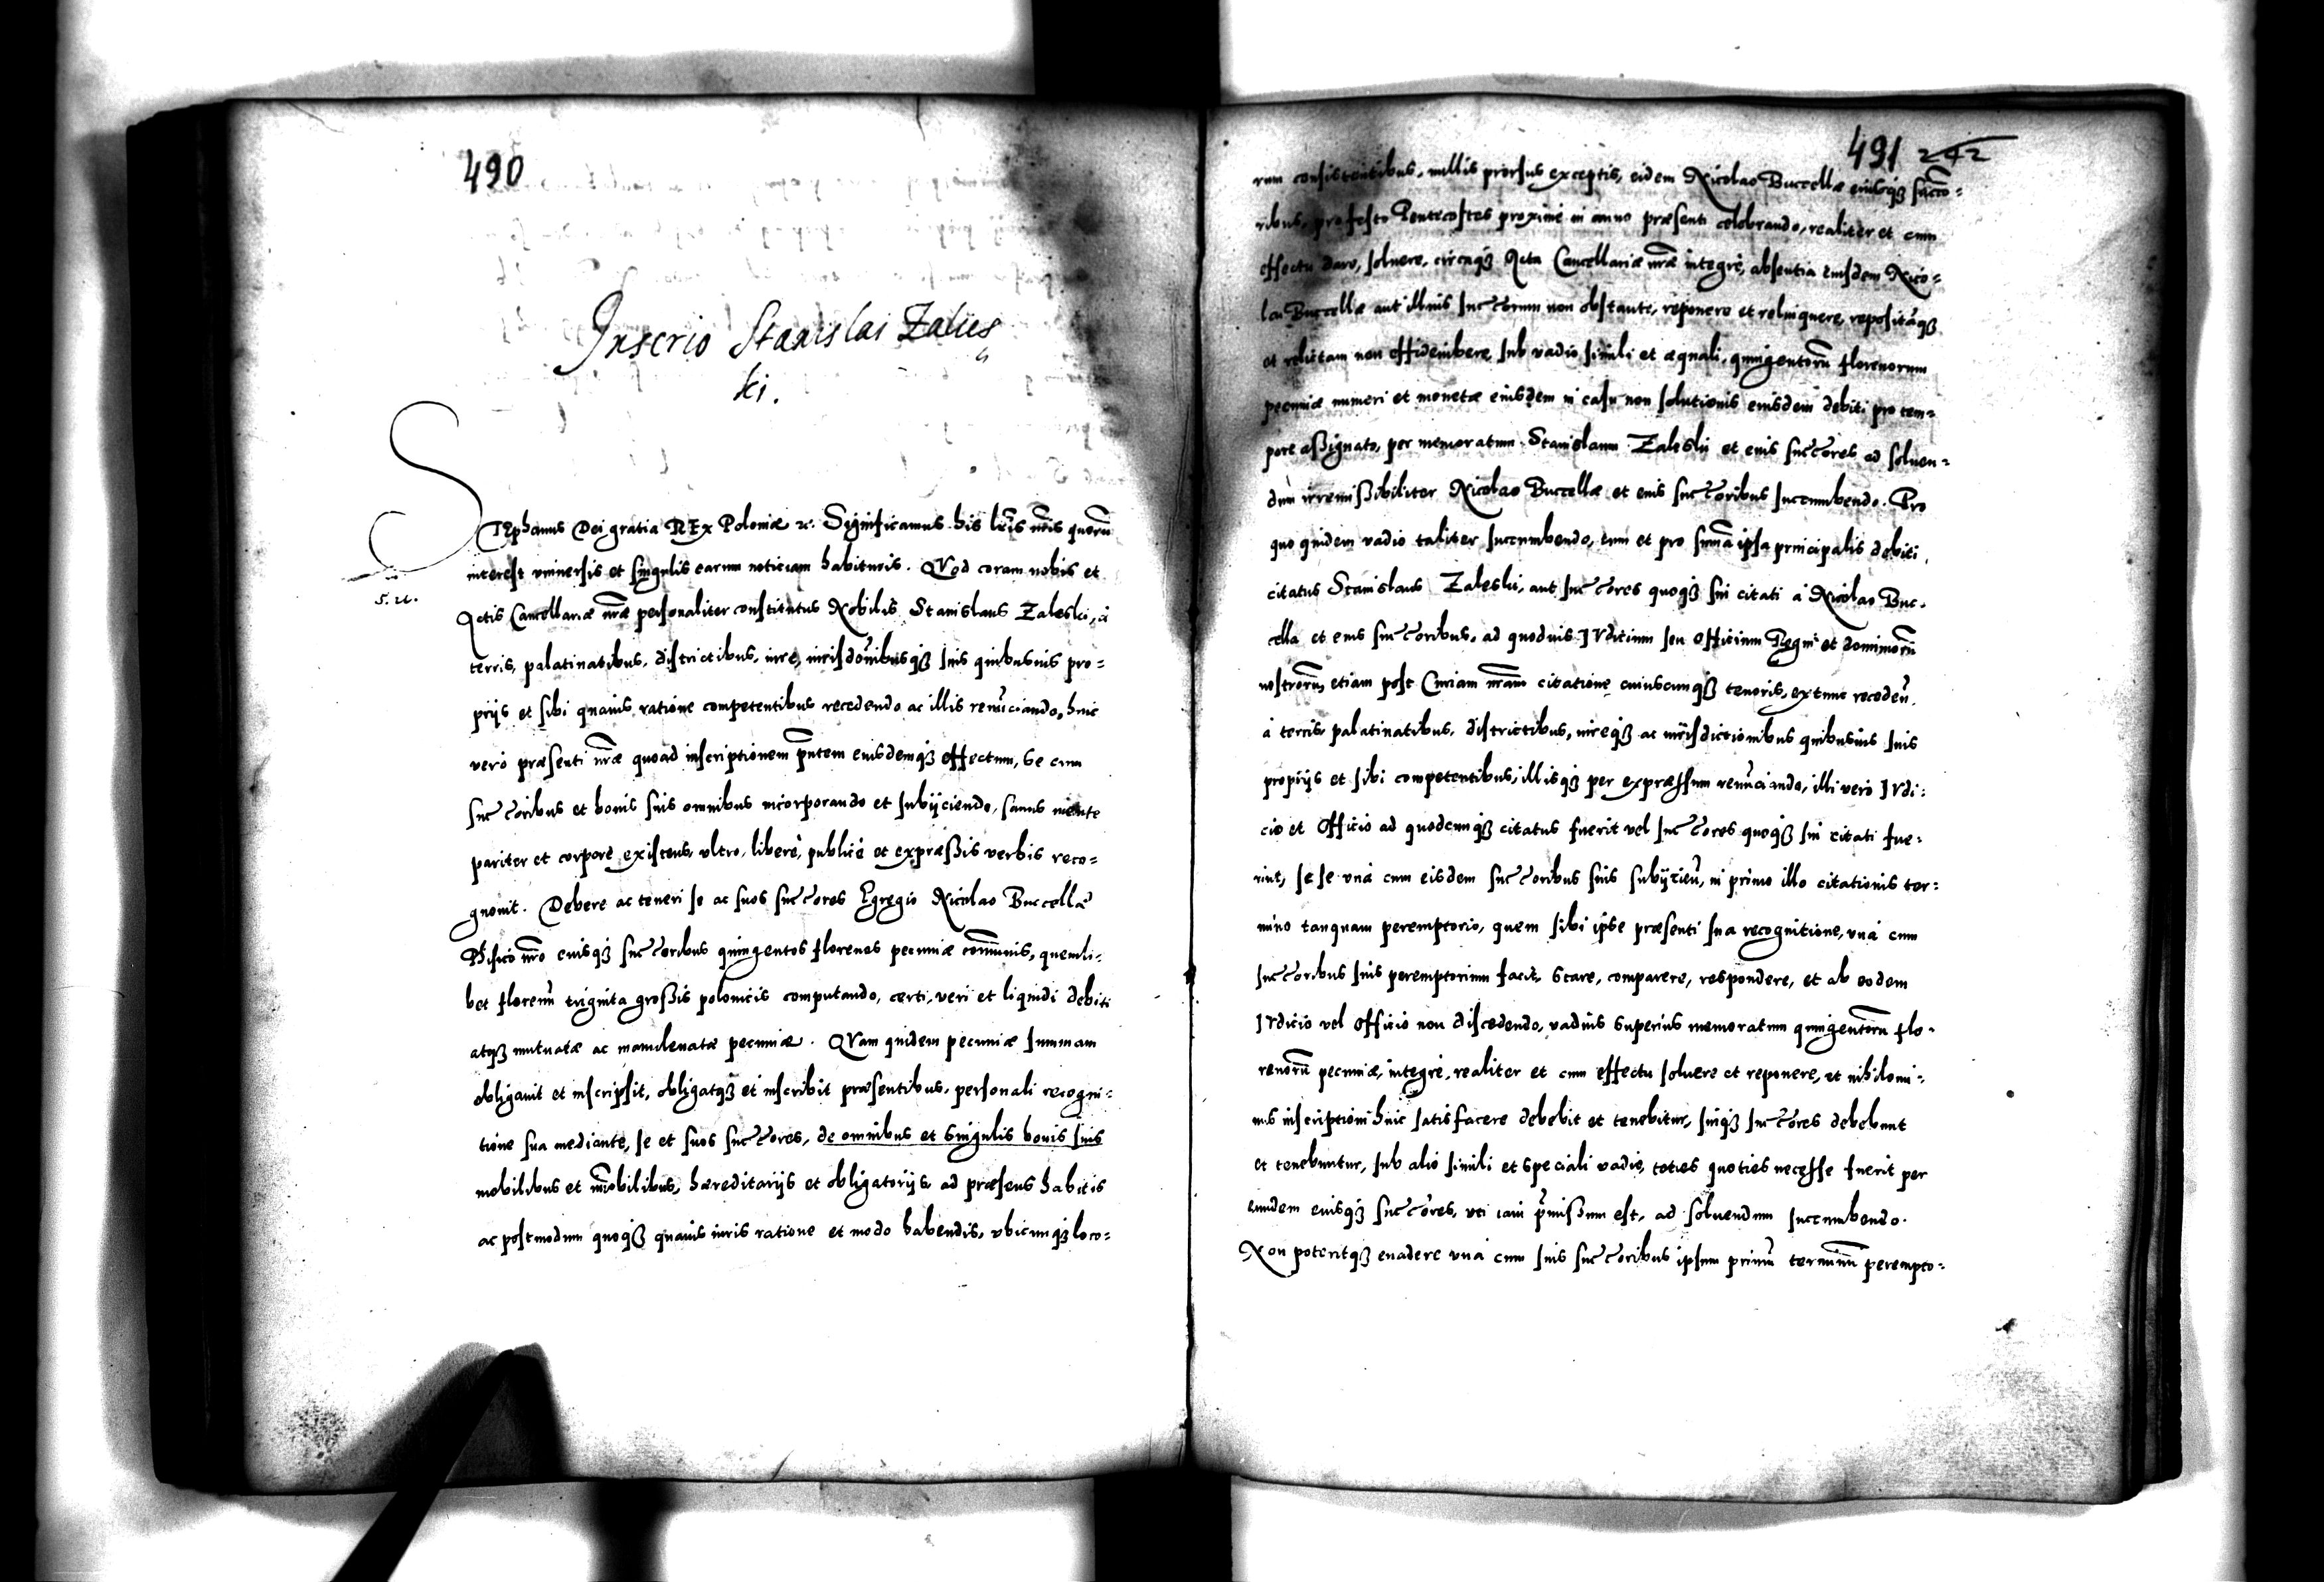 490
Inscrio Stanislai Zales
ki.
STEphanus Dei gratia REx Poloniæ &c. Significamus his lris nris quorū
interest vniuersis et singulis earum noticiam habituris. QVod coram nobis et
Actis Cancellariæ nræ personaliter constitutus Nobilis Stanislaus Zaleski, à
terris, palatinatibus, districtibus, iure, iurisdonibusq3 suis quibusuis pro=
prijs et sibi quauis ratione competentibus recedendo ac illis renūciando, huic
verò præsenti nræ quoad inscriptionem pntem eiusdemq3 effectum, se cum
succoribus et bonis suis omnibus incorporando et subijciendo, sanus mente
pariter et corpore existens, vltro, liberè, publicè et expræßis verbis reco=
gnouit. Debere ac teneri se ac suos succores Egregio Nicolao Buccellæ
Phisico nro eiusq3 succoribus quingentos florenos pecuniæ cōmunis, quemli=
bet florenū triginta großis polonicis computando, certi, veri et liquidi debiti
atq3 mutuatæ ac manuleuatæ pecuniæ. QVam quidem pecuniæ summam
obligauit et inscripsit, obligatq3 et inscribit præsentibus, personali recogni=
tione sua mediante, se et suos succores, de omnibus et singulis bonis suis
mobilibus et īmobilibus, hæreditarijs et obligatorijs ad præsens habitis
ac postmodum quoq3 quauis iuris ratione et modo habendis, vbicunq3 loco=
S. R.
491 242
rum consistentibus, nullis prorsus exceptis, eidem Nicolao Buccellæ eiusq3 succo=
ribus, pro festo Pentecostes proximè in anno præsenti celebrando, realiter et cum
effectu dare, soluere, circaq3 Acta Cancellariæ nræ integrè, absentia eiusdem Nico=
lai Buccellæ aut illius succorum non obstante, reponere et relinquere, repositāq3
et relictam non effidembere, sub vadio simili et æquali, quingentorū florenorum
pecuniæ numeri et monetæ eiusdem in casu non solutionis eiusdem debiti pro tem=
pore aßignato, per memoratum Stanislaum Zaleski et eius succores ad soluen=
dum irremißibiliter Nicolao Buccellæ et eius succoribus succumbendo. Pro
quo quidem vadio taliter succumbendo, tum et pro sūma ipsa principalis debiti,
citatus Stanislaus Zaleski, aut succores quoq3 sui citati à Nicolao Buc.
cella et eius succoribus, ad quoduis IVdicium seu Officium Regni et dominiorū
nostrorū, etiam post Curiam nram citatione cuiuscunq3 tenoris, ex tunc recedeñ.
à terris, palatinatibus, districtibus, iureq3 ac iurisdictionibus quibusuis suis
proprijs et sibi competentibus, illisq3 per expræssum renūciando, illi verò IVdi=
cio et Officio ad quodcunq3 citatus fuerit vel succores quoq3 sui citati fue=
rint, se se vnà cum eisdem succoribus suis subijcieñ, in primo illo citationis ter=
mino tanquam peremptorio, quem sibi ipse præsenti sua recognitione, vnà cum
succoribus suis peremptorium facit, stare, comparere, respondere, et ab eodem
IVdicio vel Officio non discedendo, vadium superius memoratum quingentorū flo=
renorū pecuniæ, integrè, realiter et cum effectu soluere et reponere, et nihilomi=
nus inscriptioni huic satisfacere debebit et tenebitur, suiq3 succores debebunt
et tenebuntur, sub alio simili et speciali vadio, toties quoties necesse fuerit per
eundem eiusq3 succores, vti iam pmißum est, ad soluendum succumbendo.
Non poteritq3 euadere vnà cum suis succoribus ipsum primū terminū perempto=